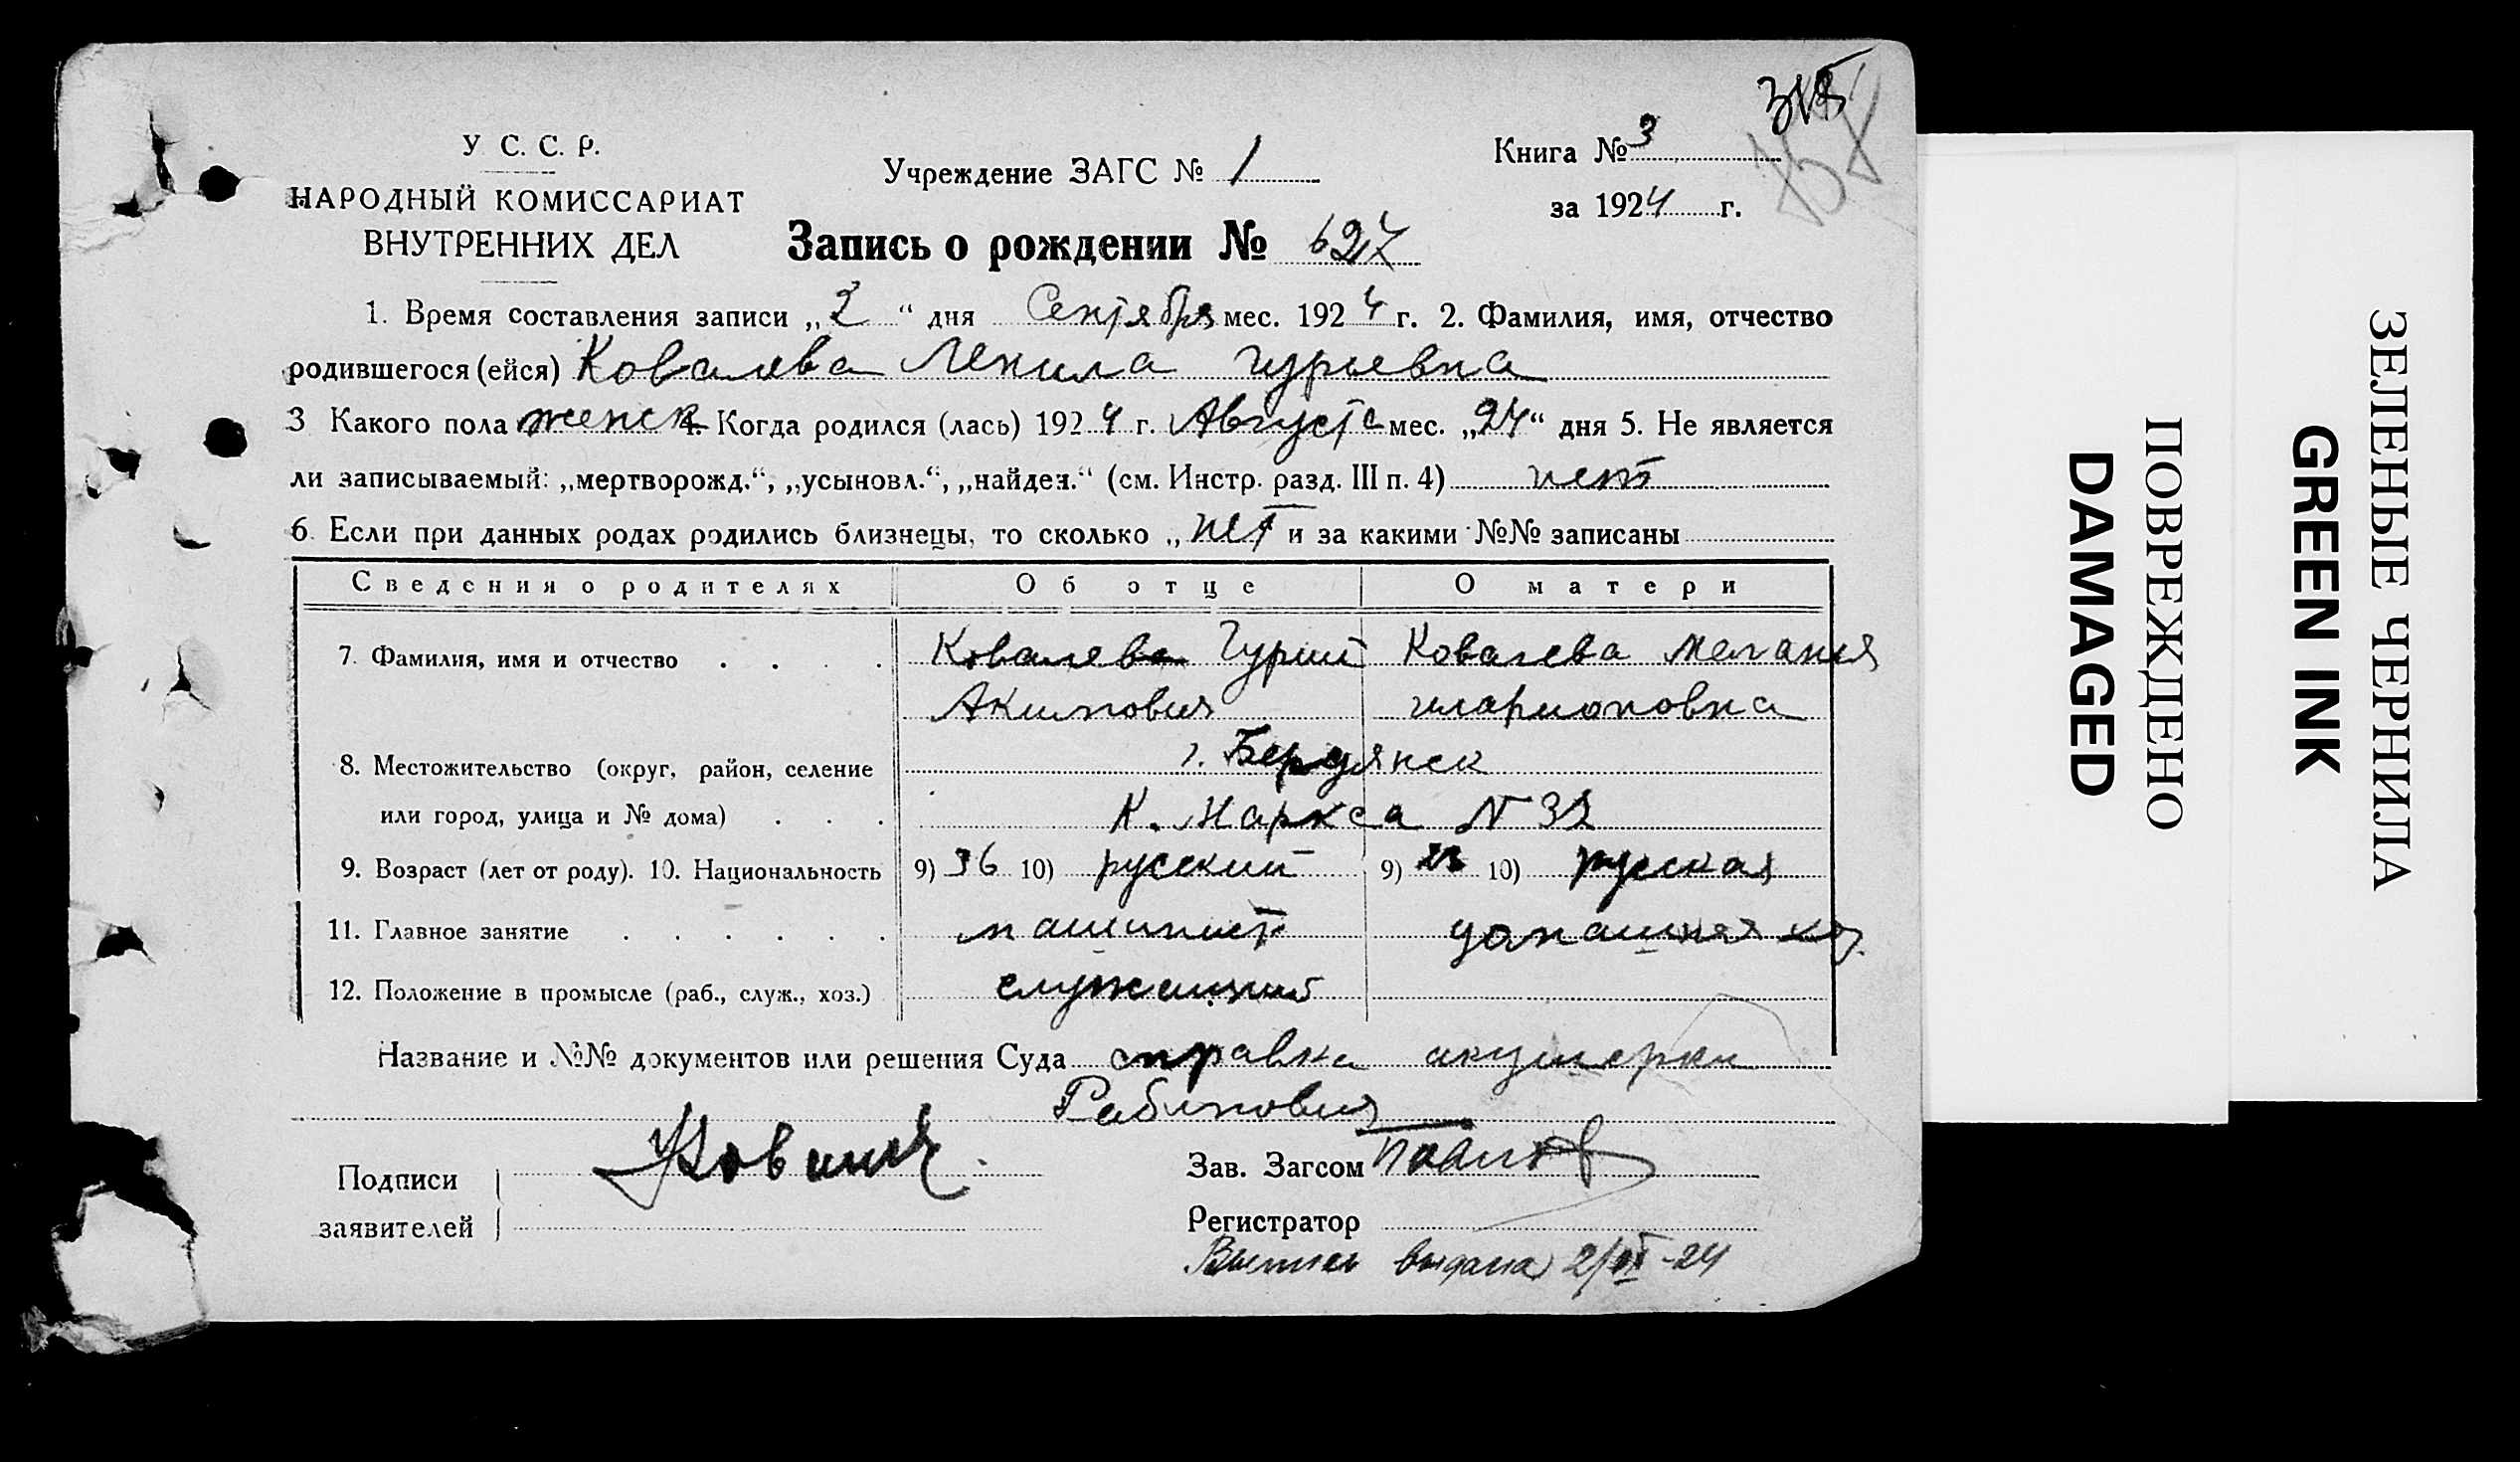 У. С. С. Р.
НАРОДНЫЙ КОМИССАРИАТ
ВНУТРЕННИХ ДЕЛ
Учреждение ЗАГС № 1
Книга № 3
за 1924 г.
Запись о рождении № 627
1. Время составления записи „2“ дня Сентября мес. 1924 г. 2. Фамилия, имя, отчество
родившегося (ейся) Ковалева Ленила гурьевна
3 Какого пола женск 4. Когда родился (лась) 1924 г. Августа мес. „24“ дня 5. Не является
ли записываемый: „мертворожд.“, „усыновл.“, „найден.“ (см. Инстр. разд. III п. 4) нет
6. Если при данных родах родились близнецы, то сколько „нет и за какими №№ записаны
Сведения о родителях Об отце О матери
7. Фамилия, имя и отчество Ковалева Гурий Ковалева Мелания
Акимович иларионовна
8. Местожительство (округ, район, селение г. Бердянск
или город, улица и № дома) К. Маркса N 32
9. Возраст (лет от роду). 10. Национальность 9) 36 10) русский 9) 10) руская
11. Главное занятие машинист домашняя хоз.
12. Положение в промысле (раб., служ., хоз.) служащий
Название и №№ документов или решения Суда справка акушерки
Рабинович
Подписи
заявителей
Зав. Загсом
Регистратор
Выпись выдана 2/IX-24
ПОВРЕЖДЕНО
DAMAGED
ЗЕЛЕНЫЕ ЧЕРНИЛА
GREEN INK